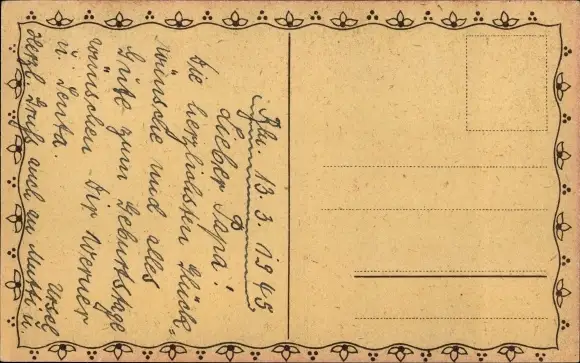 Khi. 13.3.1945
Lieber Papa!
Die herzlichsten Glück-
wünsche und alles
Gute zum Geburtstage
wünschen Dir Werner
u. Senta.
Herzl. Grüße auch an Mutti u.
Ursel